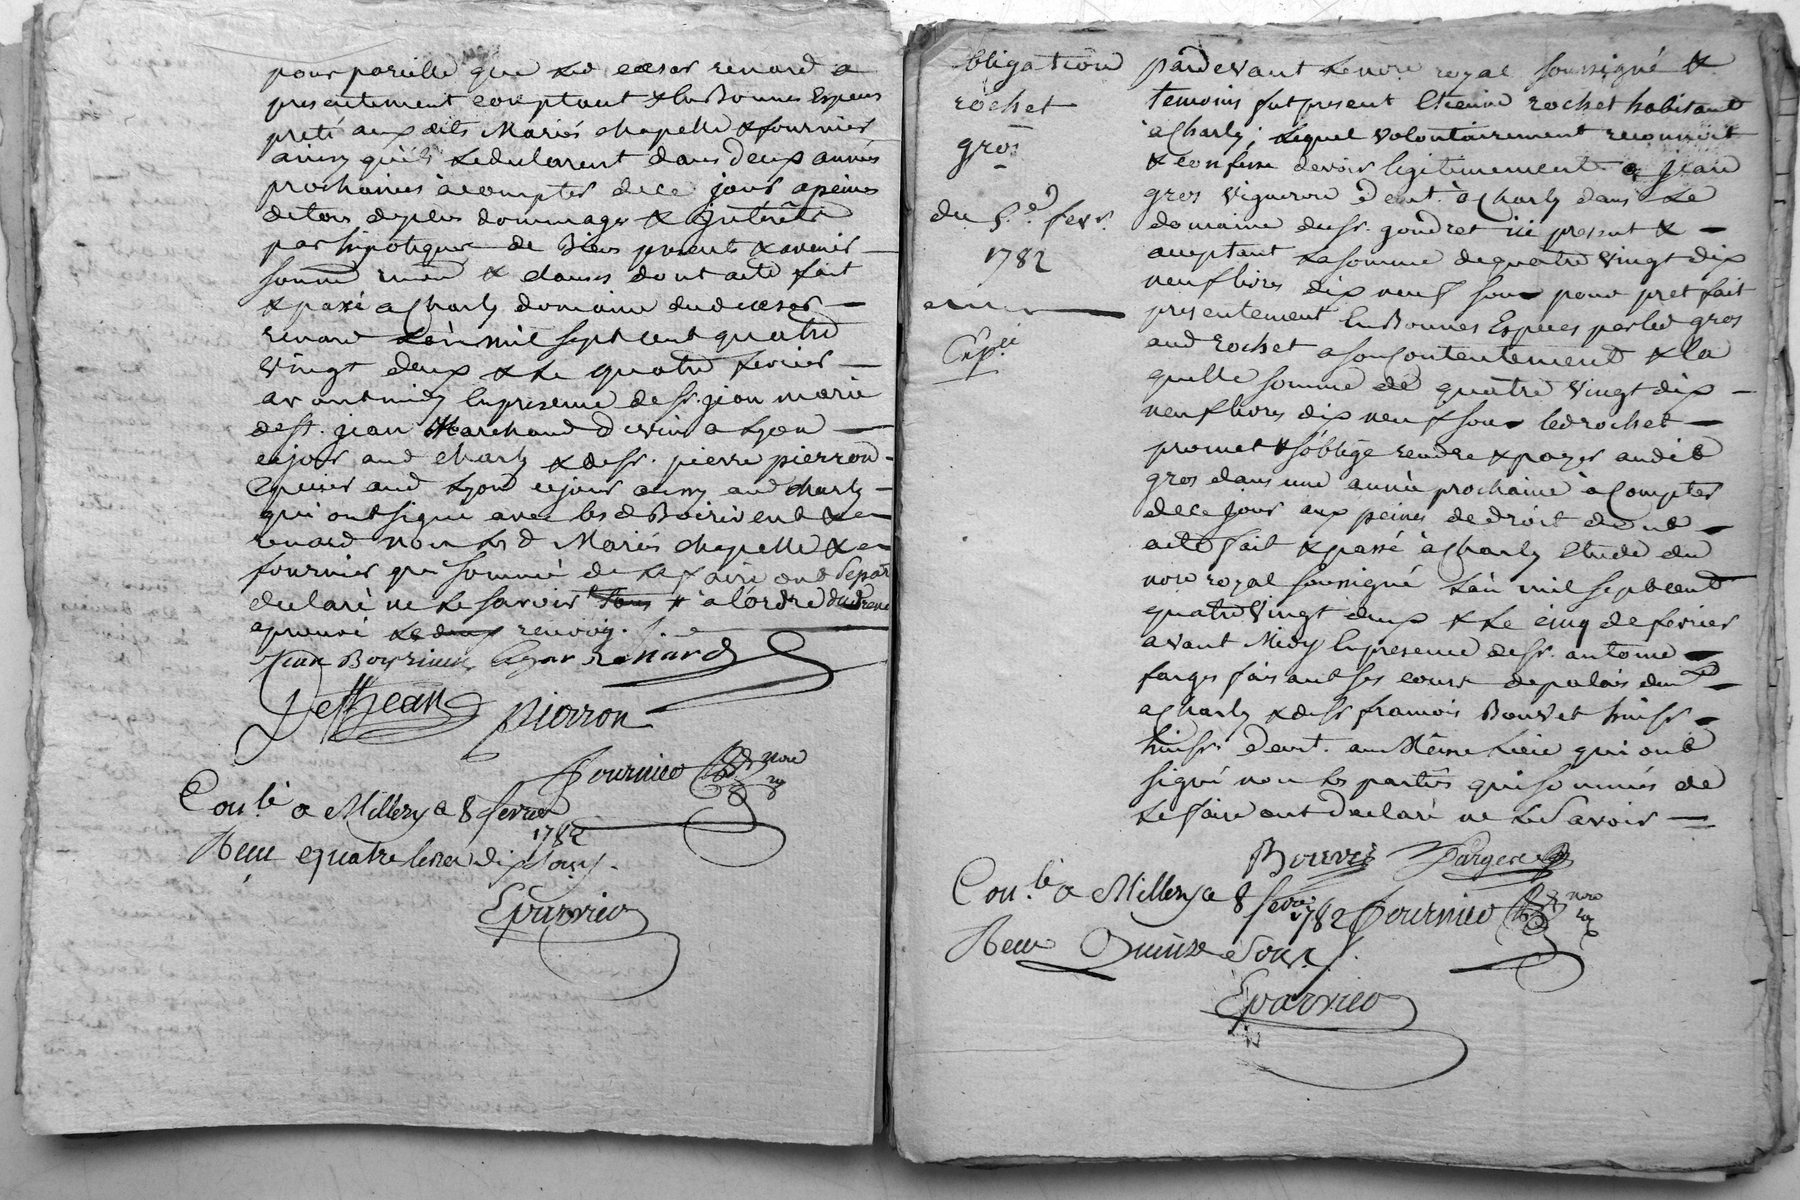 pour pareille que led cæsar renard a
presentement comptant & en Bonnes Especes
preté aux dits Mariés chapelle & fournier
ainsy qu'ils le declarent dans deux années
prochaines à compter de ce jour a peines
de tous depens dommages & Intérêts
par hipoteques de Biens presents & avenir —
soumn renon & clauses dont acte fait
& passé a Charly domaine dud cæsar —
renard L'an mil sept cent quatre
vingt deux & le quatre fevrier —
avant midy en presence de sr. jean marie
desst. jean Marchand de vin a Lyon —
ce jour aud charly & de sr. pierre pierron
Epicier aud Lyon ce jour aussy aud charly —
qui ont signé avec les d Boirivent &
renard non les d Mariés chapelle &
fournier que sommé de le faire ont separt
declaré ne le savoir # a l'ordre dud renard
aprouvé renvoy. /.
Jean Boyriven Cezar Renard
Destjean pierron
fournier nore
ry
Con.lé a Millery a 8 fevrier
1782
Recu quatre livres dix sous.
Eparvier
obligation
rochet
gros
du 5.e fevr.
1782
Exp.ié
pardevant le nore royal soussigné &
temoins fut present Etienne rochet habitant
à Charly, Lequel volontairement reconnoit
& confesse devoir legitimement a jean
gros vigneron demt. à Charly dans le
domaine du sr. gondret ici present & —
acceptant la somme de quatre vingt dix
neuf livres dix neuf sous pour pret fait
presentement en Bonnes Especes par led gros
aud rochet a son contentement & la
quelle somme de quatre vingt dix —
neuf livres dix neuf sous led rochet —
promet & s'oblige rendre & payer audit
gros dans une année prochaine à compter
de ce jour aux peines de droit dont —
acte fait & passé à Charly Etude du
nore royal soussigné L'an mil sept cent
quatre vingt deux & le cinq de fevrier
avant Midy en presence de sr. antoine —
farges faisant ses cours de palais dud —
a Charly & de sr francois Bouvet huissr —
huissr demt. au Même Lieu qui ont
signé non les parties qui sommés de
le faire ont declaré ne le Savoir —
Bouvet fargere
Con.lé a Millery a 8 fevrier
1782 fournier nore
ry
Recu Quinze sous /.
Eparvier